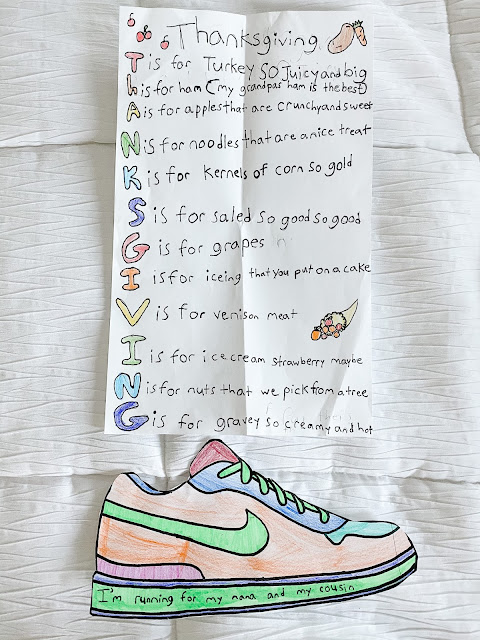 Thanksgiving
T is for Turkey SO Juicy and big
h is for ham (my grandpas ham is the best)
A is for apples that are crunchy and sweet
N is for noodles that are a nice treat
K is for kernels of corn so gold
S is for saled so good so good
G is for grapes
I is for iceing that you put on a cake
V is for venison meat
I is for ice cream strawberry maybe
N is for nuts that we pick from a tree
G is for gravey so creamy and hot
I'm running for my nana and my cousin